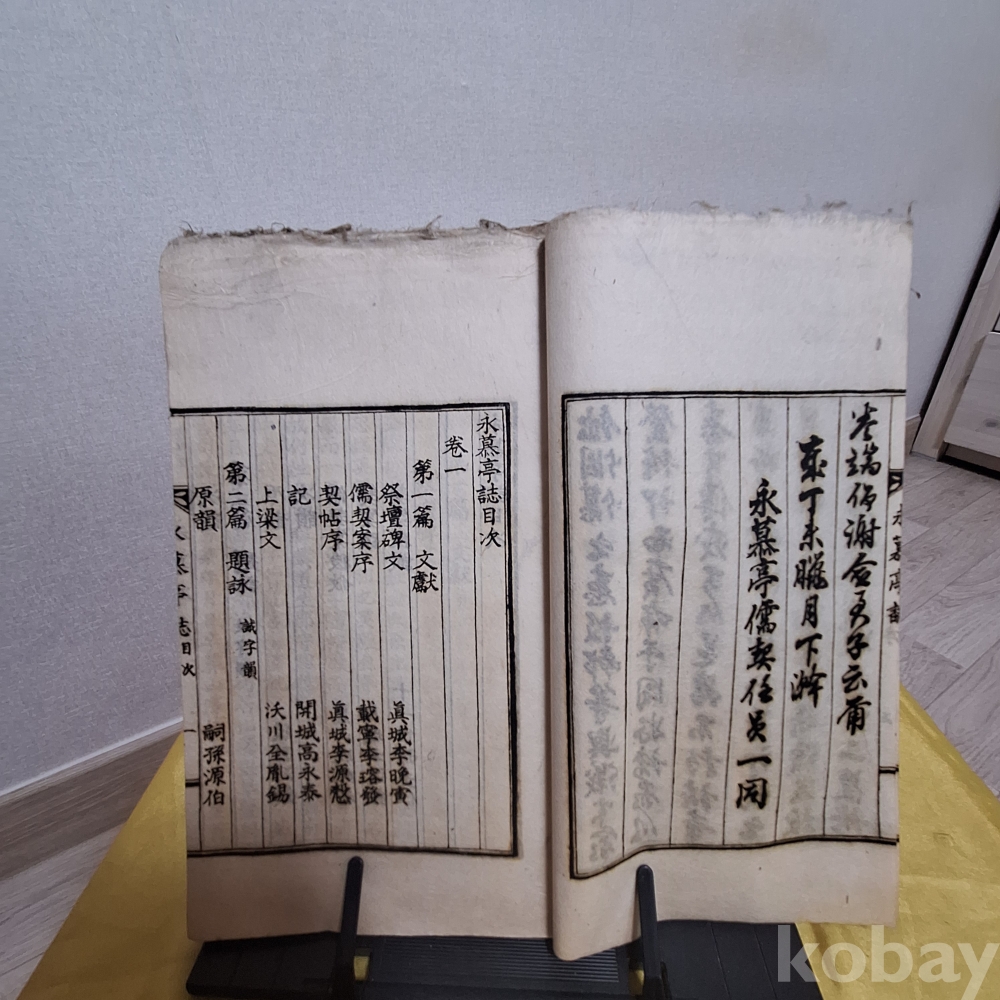 卷端仰謝僉君子云爾
歲丁未臘月下澣
永慕亭儒契任員一同
永慕亭誌
永慕亭誌目次
卷一
第一篇 文獻
祭壇碑文 眞城李晚寅
儒契案序 載寧李瑢發
契帖序 眞城李源慤
記 開城高永泰
上梁文 沃川全胤錫
第二篇 題詠 誠字韻
原韻 嗣孫源伯
永慕亭誌目次 一
kobay